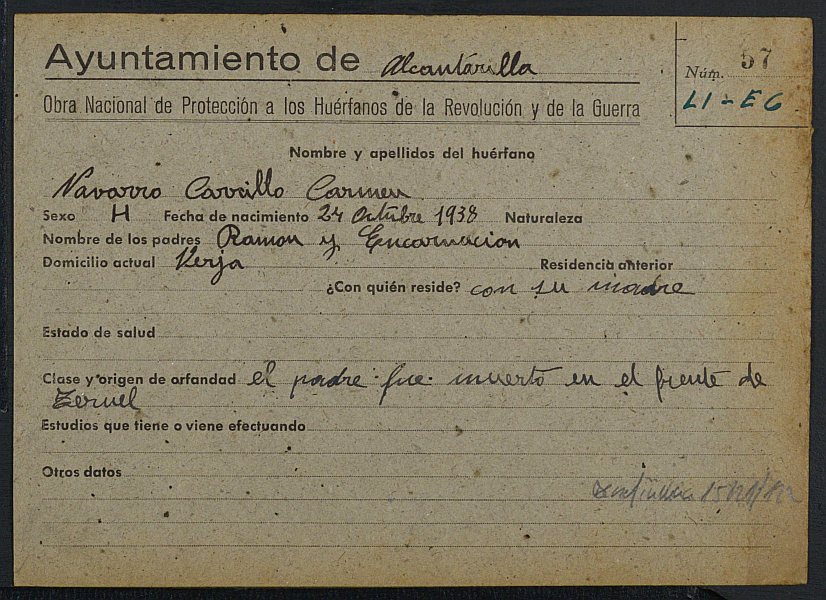 Ayuntamiento de Alcantarilla
Núm. 57
LI-E6
Obra Nacional de Protección a los Huérfanos de la Revolución y de la Guerra
Nombre y apellidos del huérfano
Navarro Carrillo Carmen
Sexo H Fecha de nacimiento 24 Octubre 1938 Naturaleza
Nombre de los padres Ramon y Encarnacion
Domicilio actual Verja Residencia anterior
¿Con quién reside? con su madre
Estado de salud
Clase y origen de orfandad el padre fue muerto en el frente de
Teruel
Estudios que tiene o viene efectuando
Otros datos